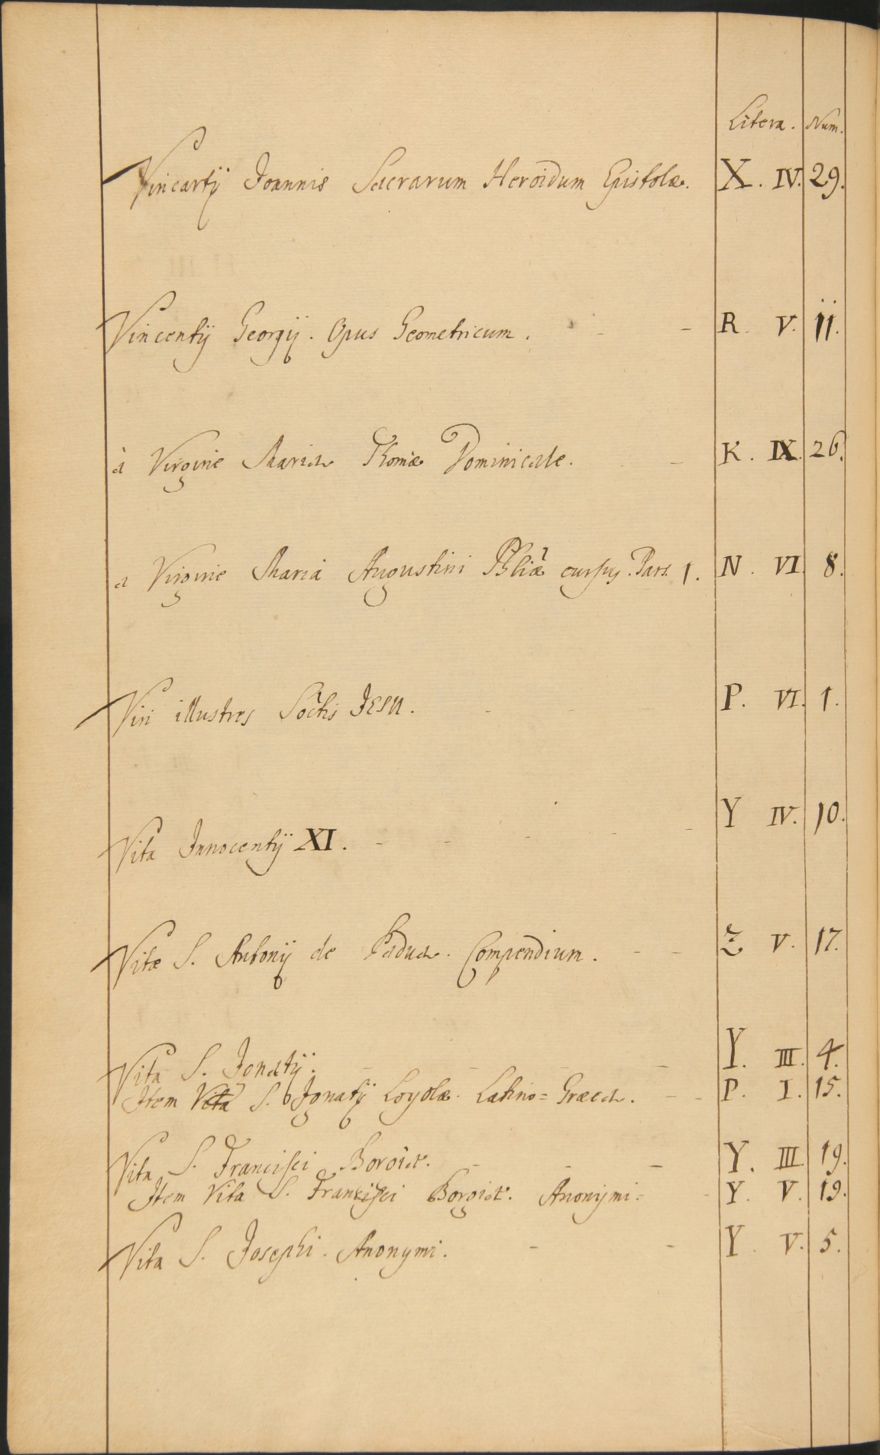 Litera. Num.
Vincartij Joannis Sacrarum Heroidum Epistolæ. X. IV. 29.
Vincentij Georgij. Opus Geometricum. - - R. V. 11.
à Virgine Mariæ Thomæ Dominicale. - K. IX. 26.
a Virgine Mariâ Augustini Phliæ cursus. Pars 1. N. VI. 8.
Viri illustres Soctis JESU. - - P. VI. 1.
Vita Innocentij XI. - - - - - Y IV. 10.
Vitæ S. Antonij de Padua. Compendium. - - Z V. 17.
Vita S. Ignatij. - - - - Y. III. 4.
Item Vita S. Ignatij Loyolæ. Latino= Græca. - - P. I. 15.
Vita S. Francisci Borgiæ. - - - Y. III. 19.
Item Vita S. Francisci Borgiæ. Anonymi= - Y. V. 19.
Vita S. Josephi. Anonymi. - - Y. V. 5.